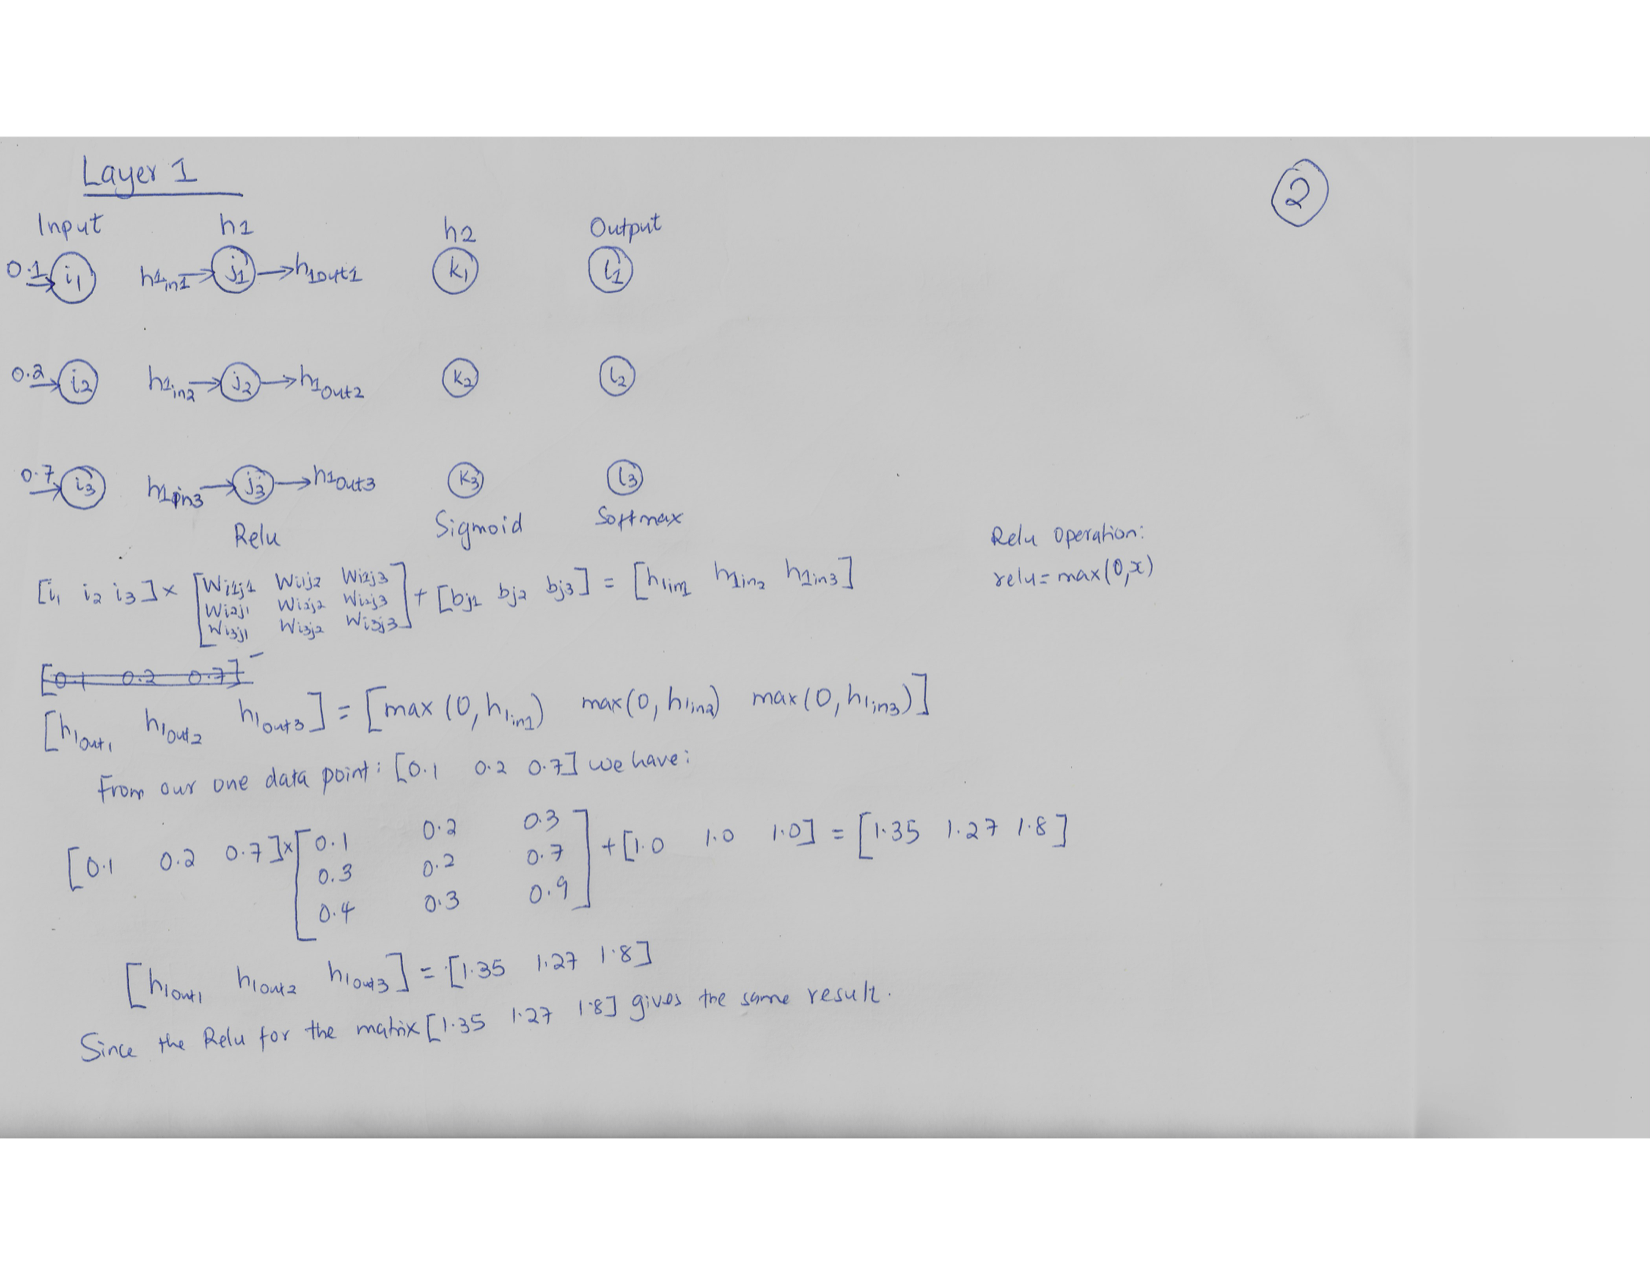 Layer 1
2
Input h1 h2 Output
0.1 i1 h1in1 j1 h1out1 k1 l1
0.2 i2 h1in2 j2 h1out2 k2 l2
0.7 i3 h1in3 j3 h1out3 k3 l3
Relu Sigmoid Softmax
Relu Operation:
relu = max(0,x)
[i1 i2 i3] × [Wi1j1 Wi1j2 Wi1j3
Wi2j1 Wi2j2 Wi2j3
Wi3j1 Wi3j2 Wi3j3] + [bj1 bj2 bj3] = [h1in1 h1in2 h1in3]
[0.1 0.2 0.7]
[h1out1 h1out2 h1out3] = [max (0, h1in1) max(0, h1in2) max(0, h1in3)]
From our one data point: [0.1 0.2 0.7] we have:
[0.1 0.2 0.7] × [0.1 0.2 0.3
0.3 0.2 0.7
0.4 0.3 0.9] + [1.0 1.0 1.0] = [1.35 1.27 1.8]
[h1out1 h1out2 h1out3] = [1.35 1.27 1.8]
Since the Relu for the matrix [1.35 1.27 1.8] gives the same result.